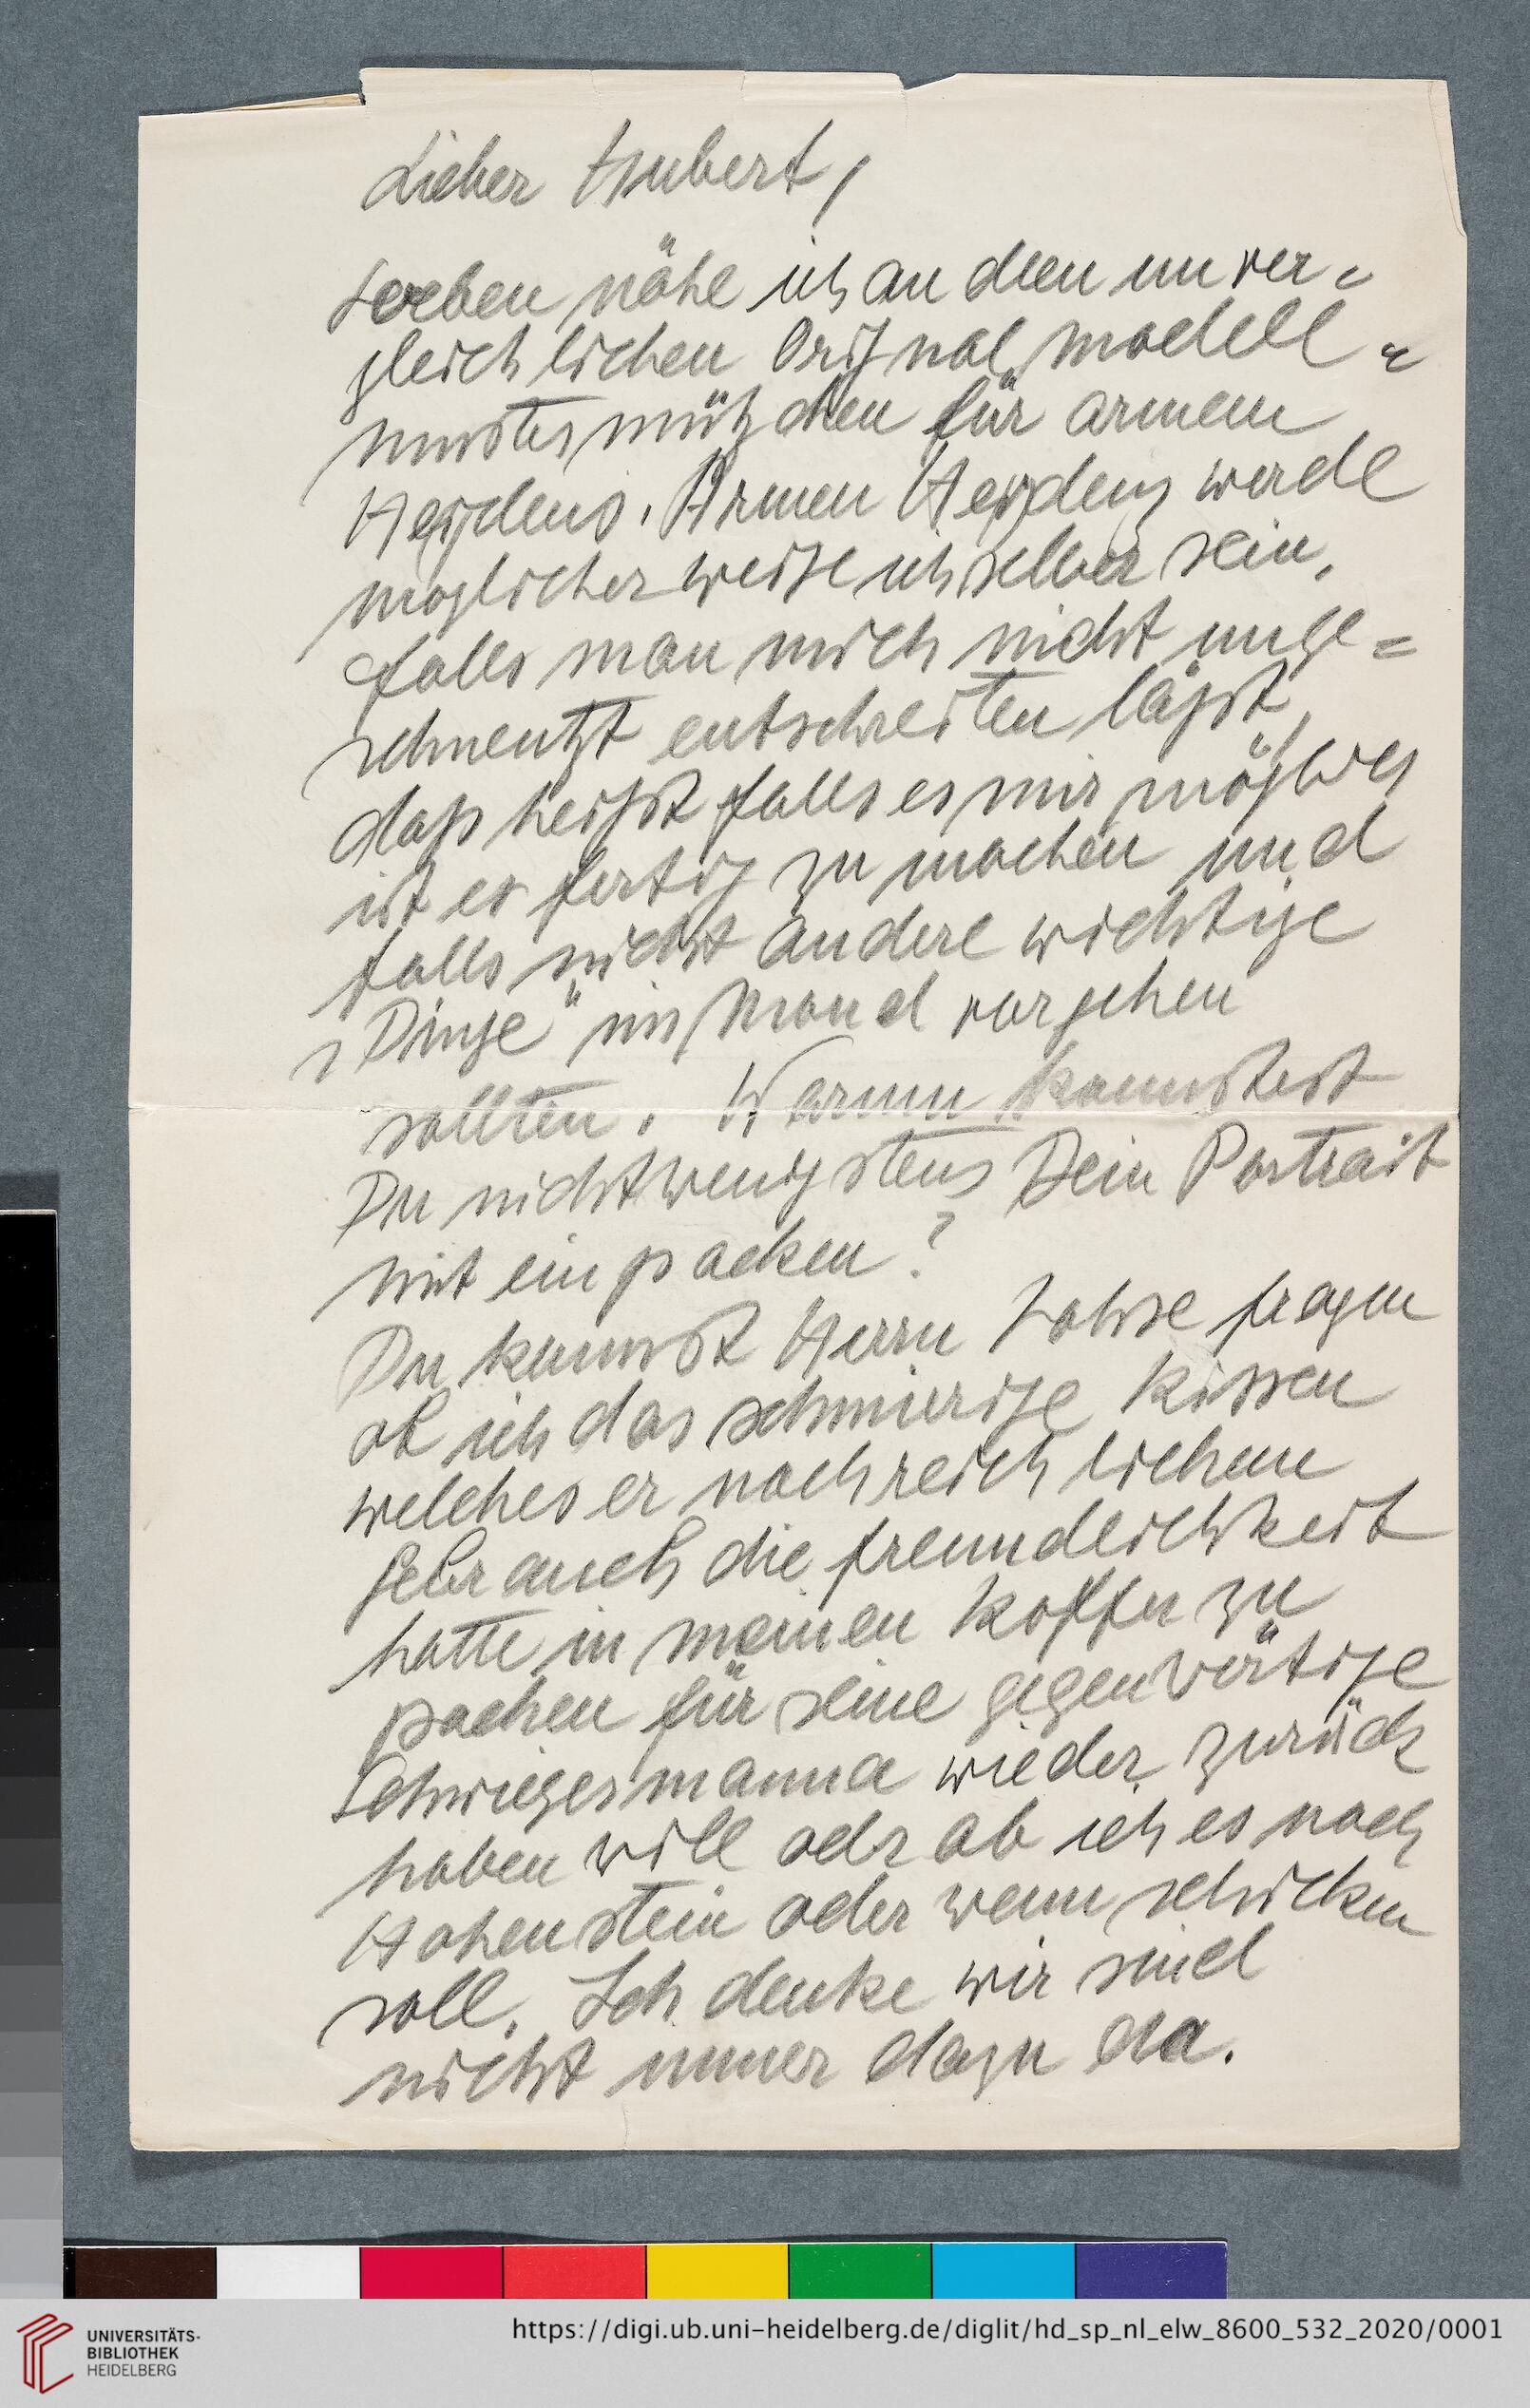 Lieber Hubert,
soeben nähe ich an dem unver=
gleichlichen Orignalmodell=
mustermützchen für armem
Heydens. Armen Heydens werde
moglicherweise ich selber sein,
falls man mich nicht unge=
schneutzt entschreiten läßt,
daß heißt falls es mir möglich
ist es fertig zu machen und
falls nicht andere wichtige
„Dinge" im Mond vorgehen
sollten. Warum konntest
Du nicht wenigstens Dein Portrait
mit einpacken?
Du kannst Herrn Lohse fragen
ob ich das schmierige Kissen
welches er nach reichlichem
Gebrauch die freundlichkeit
hatte in meinen Koffer zu
packen für seine gegenwärtige
Schwiegermama wieder zurück
haben will odr ob ich es nach
Hohenstein oder wenn schicken
soll. Ich denke wir sind
nicht immer dazu da.
UNIVERSITÄTS-
BIBLIOTHEK
HEIDELBERG
https://digi.ub.uni-heidelberg.de/diglit/hd_sp_nl_elw_8600_532_2020/0001